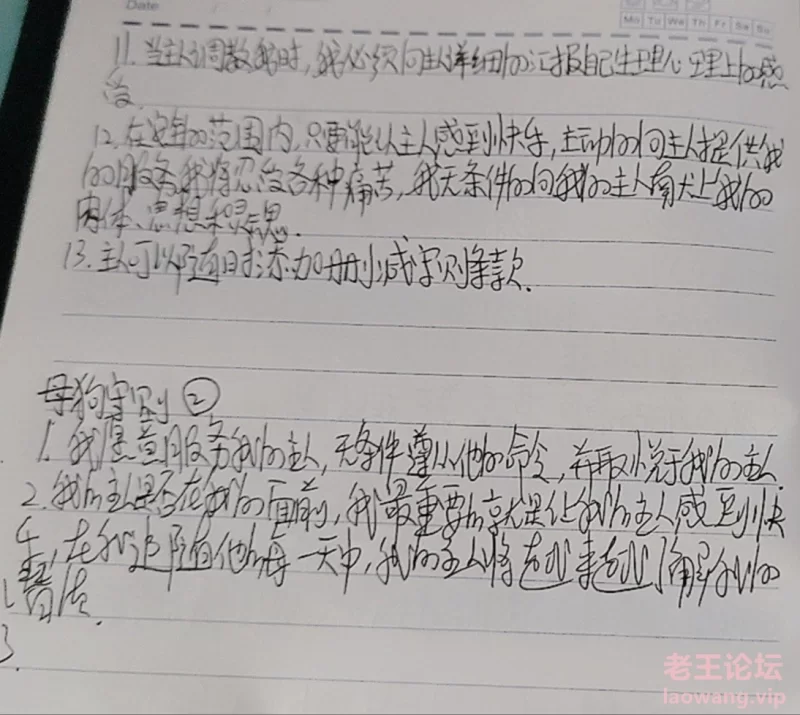 Date
Mo Tu We Th Fr Sa Su
11. 当主人调教我时，我必须向主人详细的汇报自己生理心理上的感
受.
12. 在安全的范围内，只要能让主人感到快乐，主动的向主人提供我
的服务我将忍受各种痛苦，我无条件的向我的主人献上我的
肉体、思想和灵魂.
13. 主人可以随时添加删减守则条款.
母狗守则 ②
1. 我愿意服务我的主人，无条件遵从他的命令，并取悦于我的主人.
2. 我的主人是否在我的面前，我最重要的就是让我的主人感到快
乐，在我追随他的每一天中，我的主人将越来越了解我的
3.
老王论坛
laowang.vip